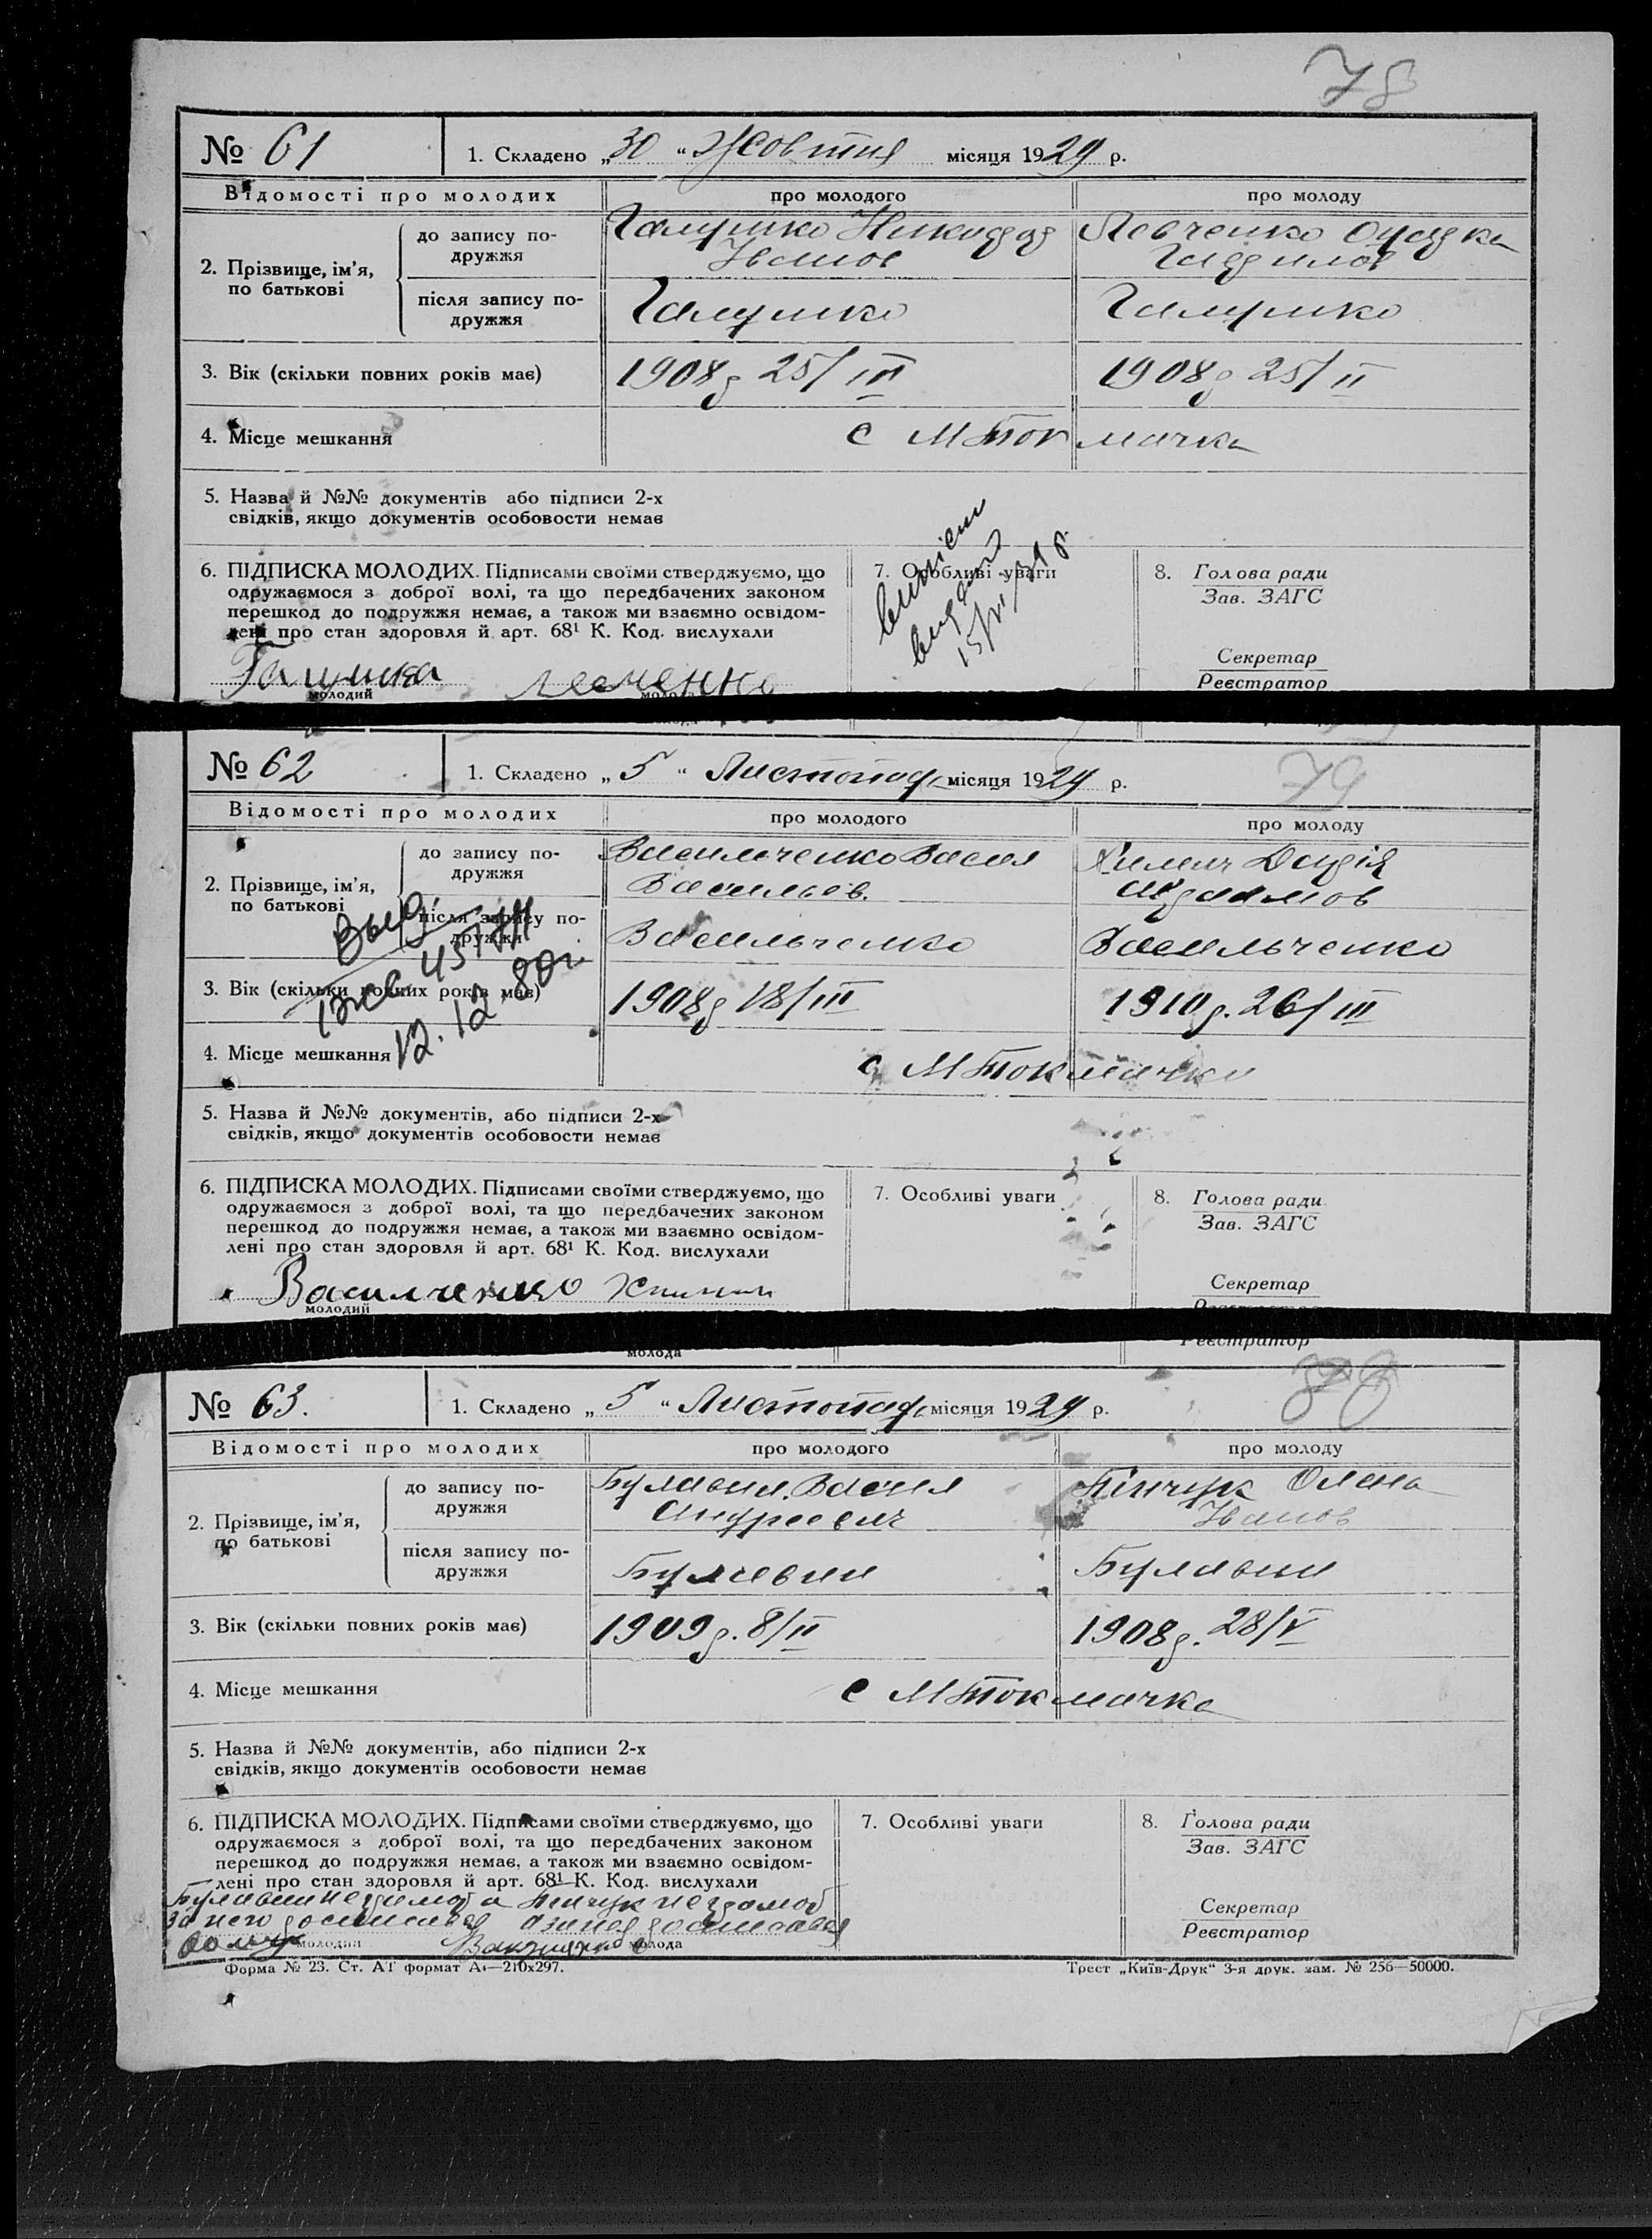 78
№ 61 1. Складено „30“ Жовтня місяця 1929 р.
Відомості про молодих про молодого про молоду
2. Прізвище, ім’я, по батькові
до запису по-
дружжя
Галушко Никифор Левченко
Іванов
після запису по-
дружжя
Галушко Галушко
3. Вік (скільки повних років має) 1908 р 25/III 1908 р 25/II
4. Місце мешкання с М Токмачка
5. Назва й №№ документів або підписи 2-х
свідків, якщо документів особовости немає
6. ПІДПИСКА МОЛОДИХ. Підписами своїми стверджуємо, що
одружаємося з доброї волі, та що передбачених законом
перешкод до подружжя немає, а також ми взаємно освідом-
лені про стан здоровля й арт. 68¹ К. Код. вислухали
Галушка
молодий молода
7. Особливі уваги
8. Голова ради
Зав. ЗАГС
Секретар
Реєстратор
№ 62 1. Складено „5“ Листопада місяця 1929 р.
79
Відомості про молодих про молодого про молоду
2. Прізвище, ім’я,
по батькові
до запису по-
дружжя
Васильченко Васил
Васильов.
після запису по-
дружжя
Васильченко Васильченко
3. Вік (скільки повних років має) 1908 р 18/III 1910 р. 26/III
12.12.80г.
4. Місце мешкання с М Токмачка
5. Назва й №№ документів, або підписи 2-х
свідків, якщо документів особовости немає
6. ПІДПИСКА МОЛОДИХ. Підписами своїми стверджуємо, що
одружаємося з доброї волі, та що передбачених законом
перешкод до подружжя немає, а також ми взаємно освідом-
лені про стан здоровля й арт. 68¹ К. Код. вислухали
Василченко
молодий
7. Особливі уваги
8. Голова ради
Зав. ЗАГС
Секретар
Реєстратор
молода
№ 63. 1. Складено „5“ Листопада місяця 1929 р.
80
Відомості про молодих про молодого про молоду
2. Прізвище, ім’я,
по батькові
до запису по-
дружжя
Булавин Васил Пінчук Олена
Андреевич Іванов
після запису по-
дружжя
Булавин Булавин
3. Вік (скільки повних років має) 1909 р. 8/II 1908 р. 28/V
4. Місце мешкання с М Токмачка
5. Назва й №№ документів, або підписи 2-х
свідків, якщо документів особовости немає
6. ПІДПИСКА МОЛОДИХ. Підписами своїми стверджуємо, що
одружаємося з доброї волі, та що передбачених законом
перешкод до подружжя немає, а також ми взаємно освідом-
лені про стан здоровля й арт. 68¹ К. Код. вислухали
молодий молода
7. Особливі уваги
8. Голова ради
Зав. ЗАГС
Секретар
Реєстратор
Форма № 23. Ст. АТ формат А₄—210х297. Трест „Київ-Друк“ 3-я друк. зам. № 256—50000.